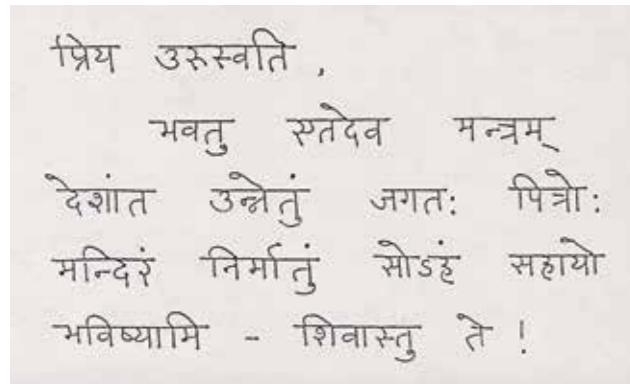 प्रिय उरुस्वति,
भवतु एतदेव मन्त्रम्
देशांत उन्नेतुं जगतः पित्रोः
मन्दिरं निर्मातुं सोऽहं सहायो
भविष्यामि - शिवास्तु ते !